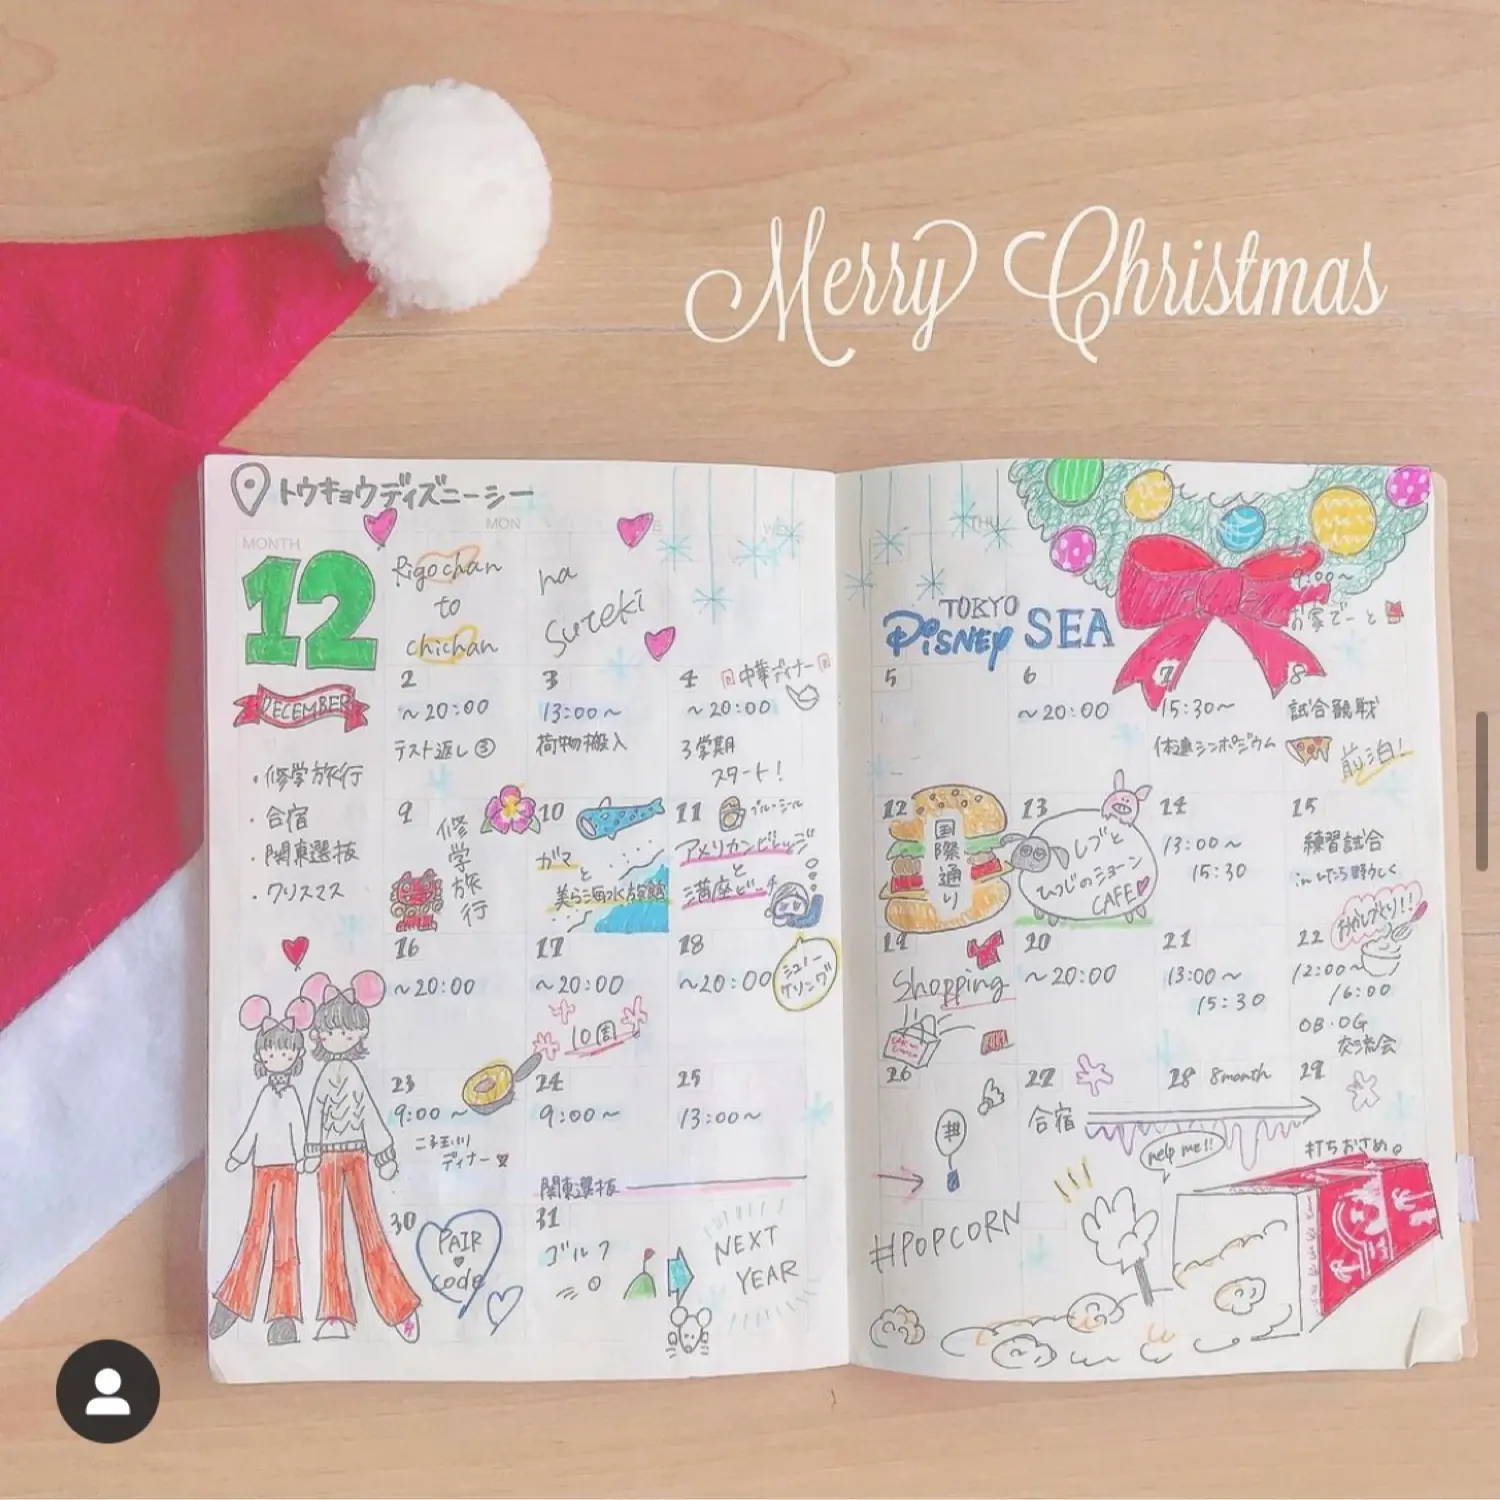 Merry Christmas
トウキョウディズニーシー
MONTH
MON
THU
12
DECEMBER
・修学旅行
・合宿
・関東選抜
・クリスマス
Rigochan
to
chichan
na
suteki
TOKYO
DISNEY SEA
9:00~
お家でーと
2
~20:00
テスト返し③
3
13:00~
荷物搬入
4
中華ディナー
~20:00
3学期
スタート!
5
6
~20:00
7
15:30~
体連シンポジウム
8
試合観戦
前泊!
9
修学旅行
10
ガマ
と
美ら海水族館
11
ブルーシール
アメリカンビレッジ
と
12
国際通り
13
しブと
ひつじのショーン
CAFE
14
13:00~
15:30
15
練習試合
16
~20:00
17
~20:00
10周
18
~20:00
シュノーケリング
19
Shopping
20
~20:00
21
13:00~
15:30
22
12:00~
16:00
OB・OG
交流会
23
9:00~
二子玉川
ディナー
24
9:00~
25
13:00~
関東選抜
26
27
合宿
28 8month
29
打ちおさめ。
help me!!
30
PAIR
code
31
ゴルフ
NEXT
YEAR
#POPCORN